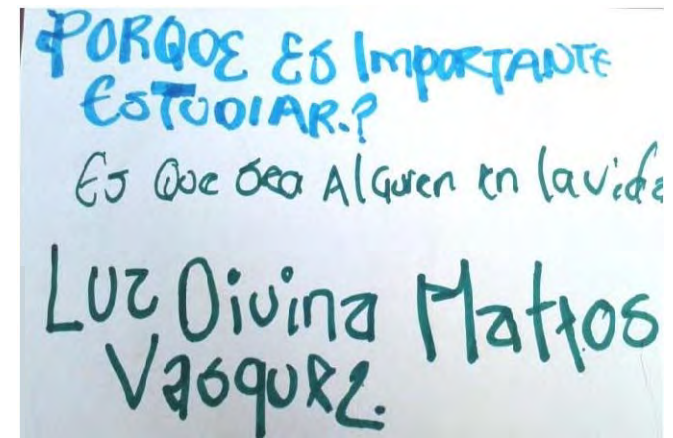 PORQUE ES IMPORTANTE
ESTUDIAR.?
Es Que sea Alguien en la vida
Luz Divina Mattos
Vasquez.